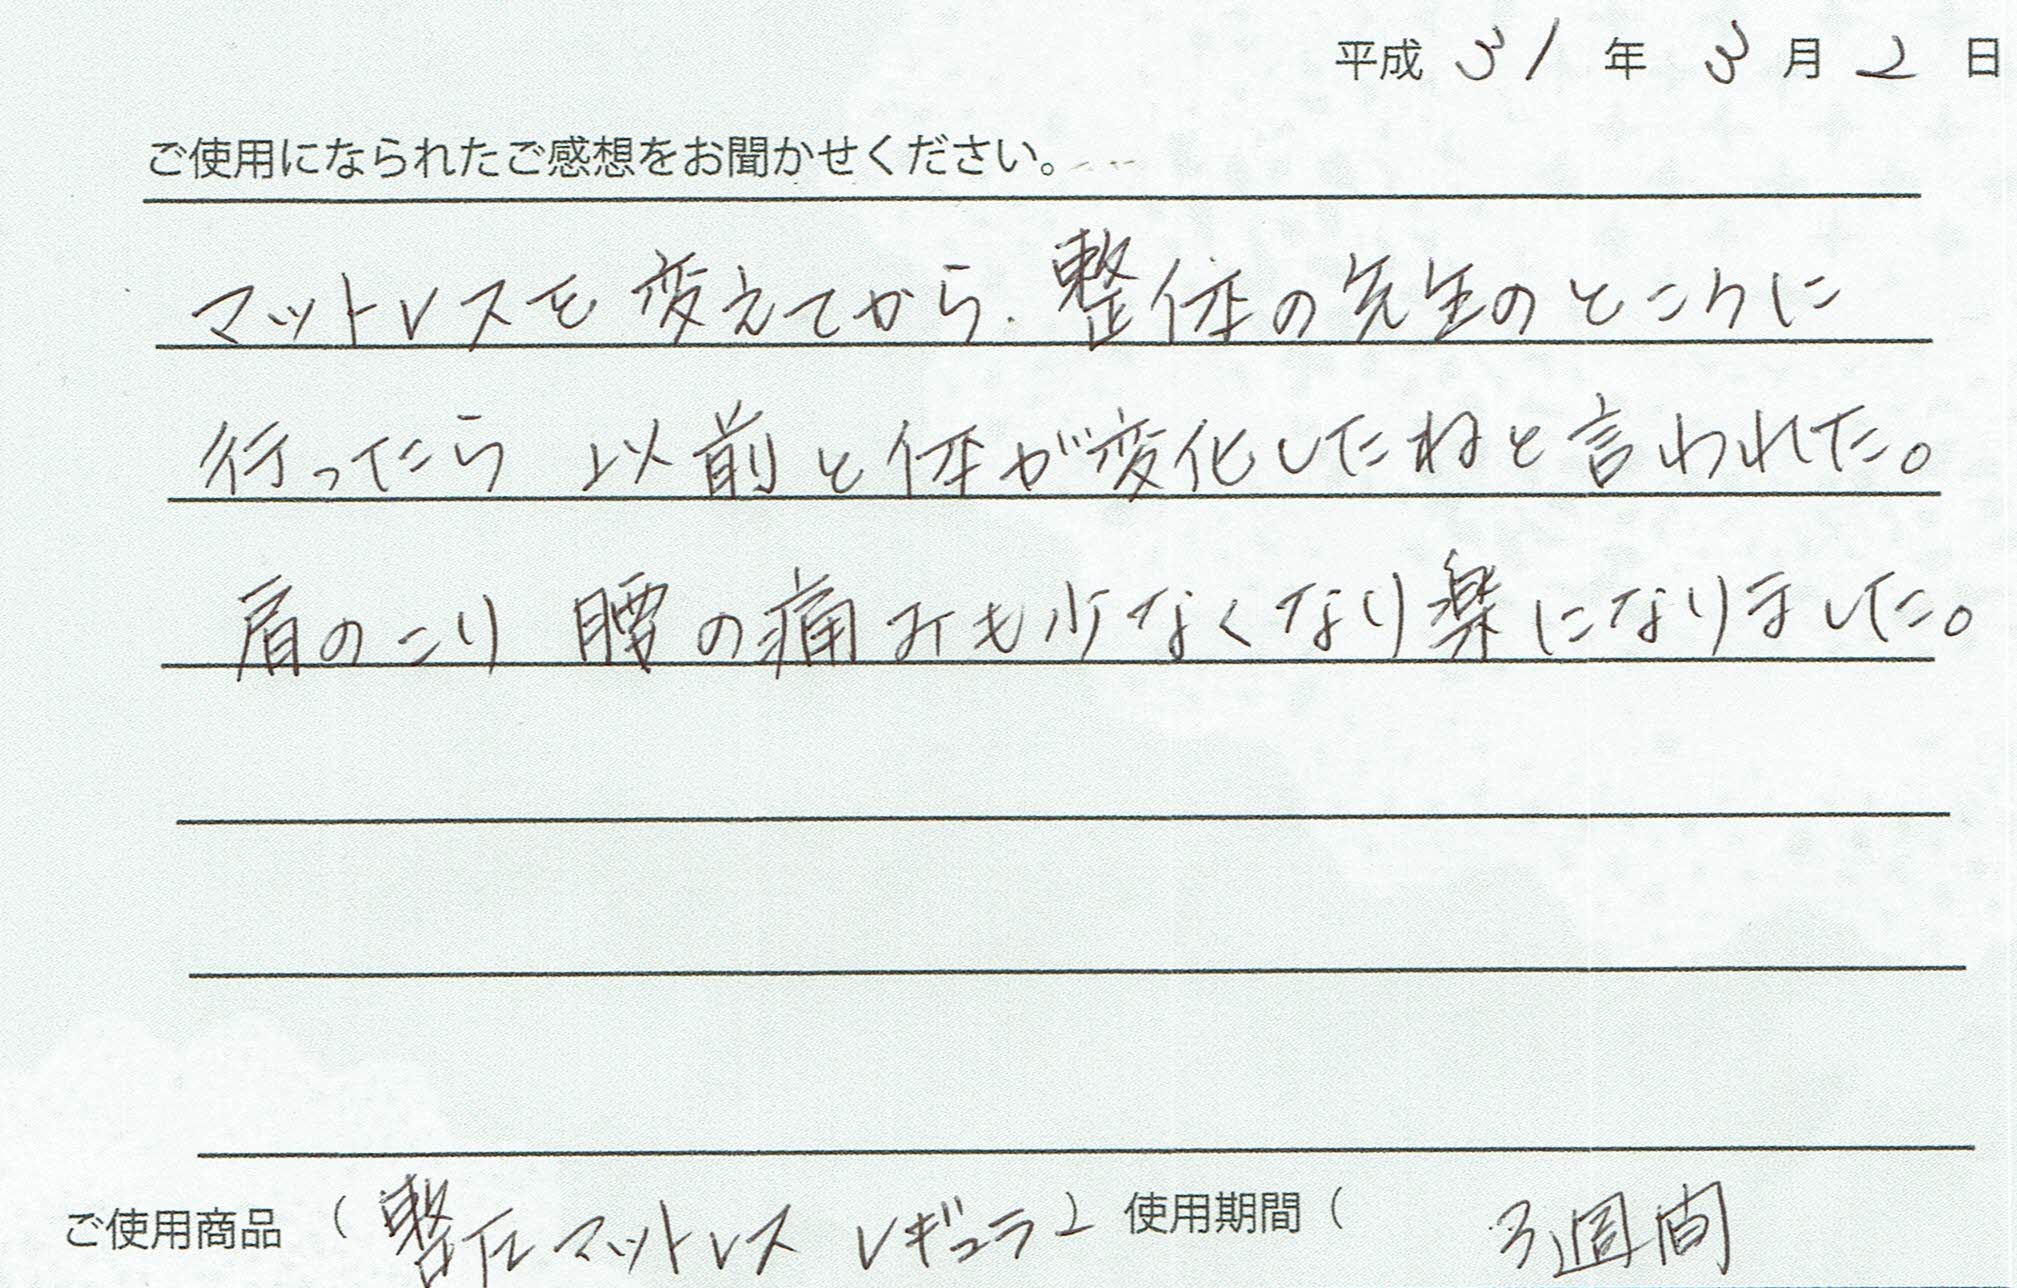 平成 31 年 3 月 2 日
ご使用になられたご感想をお聞かせください。
マットレスを変えてから、整体の先生のところに
行ったら 以前と体が変化したねと言われた。
肩のこり 腰の痛みも少なくなり楽になりました。
ご使用商品 (整圧マットレス レギュラー) 使用期間 ( 3週間